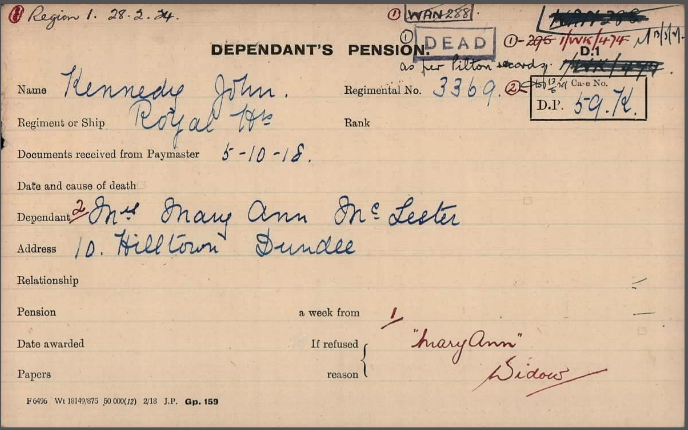 ① Region 1. 28.2.24. ① WAN 288.
DEPENDANT'S PENSION. ① DEAD ①-296 1/WK/474
as per Pilton records. D.1
Name Kennedy John. Regimental No. 3369. ② Case No.
Regiment or Ship Royal Hrs Rank D.P. 59.K.
Documents received from Paymaster 5-10-18.
Date and cause of death
Dependant 2 Mrs Mary Ann McLester
Address 10. Hilltown Dundee
Relationship
Pension a week from 1
Date awarded If refused "Mary Ann"
Papers reason Widow
F 6496 Wt 18149/875 50 000(12) 2/18 J.P. Gp. 159